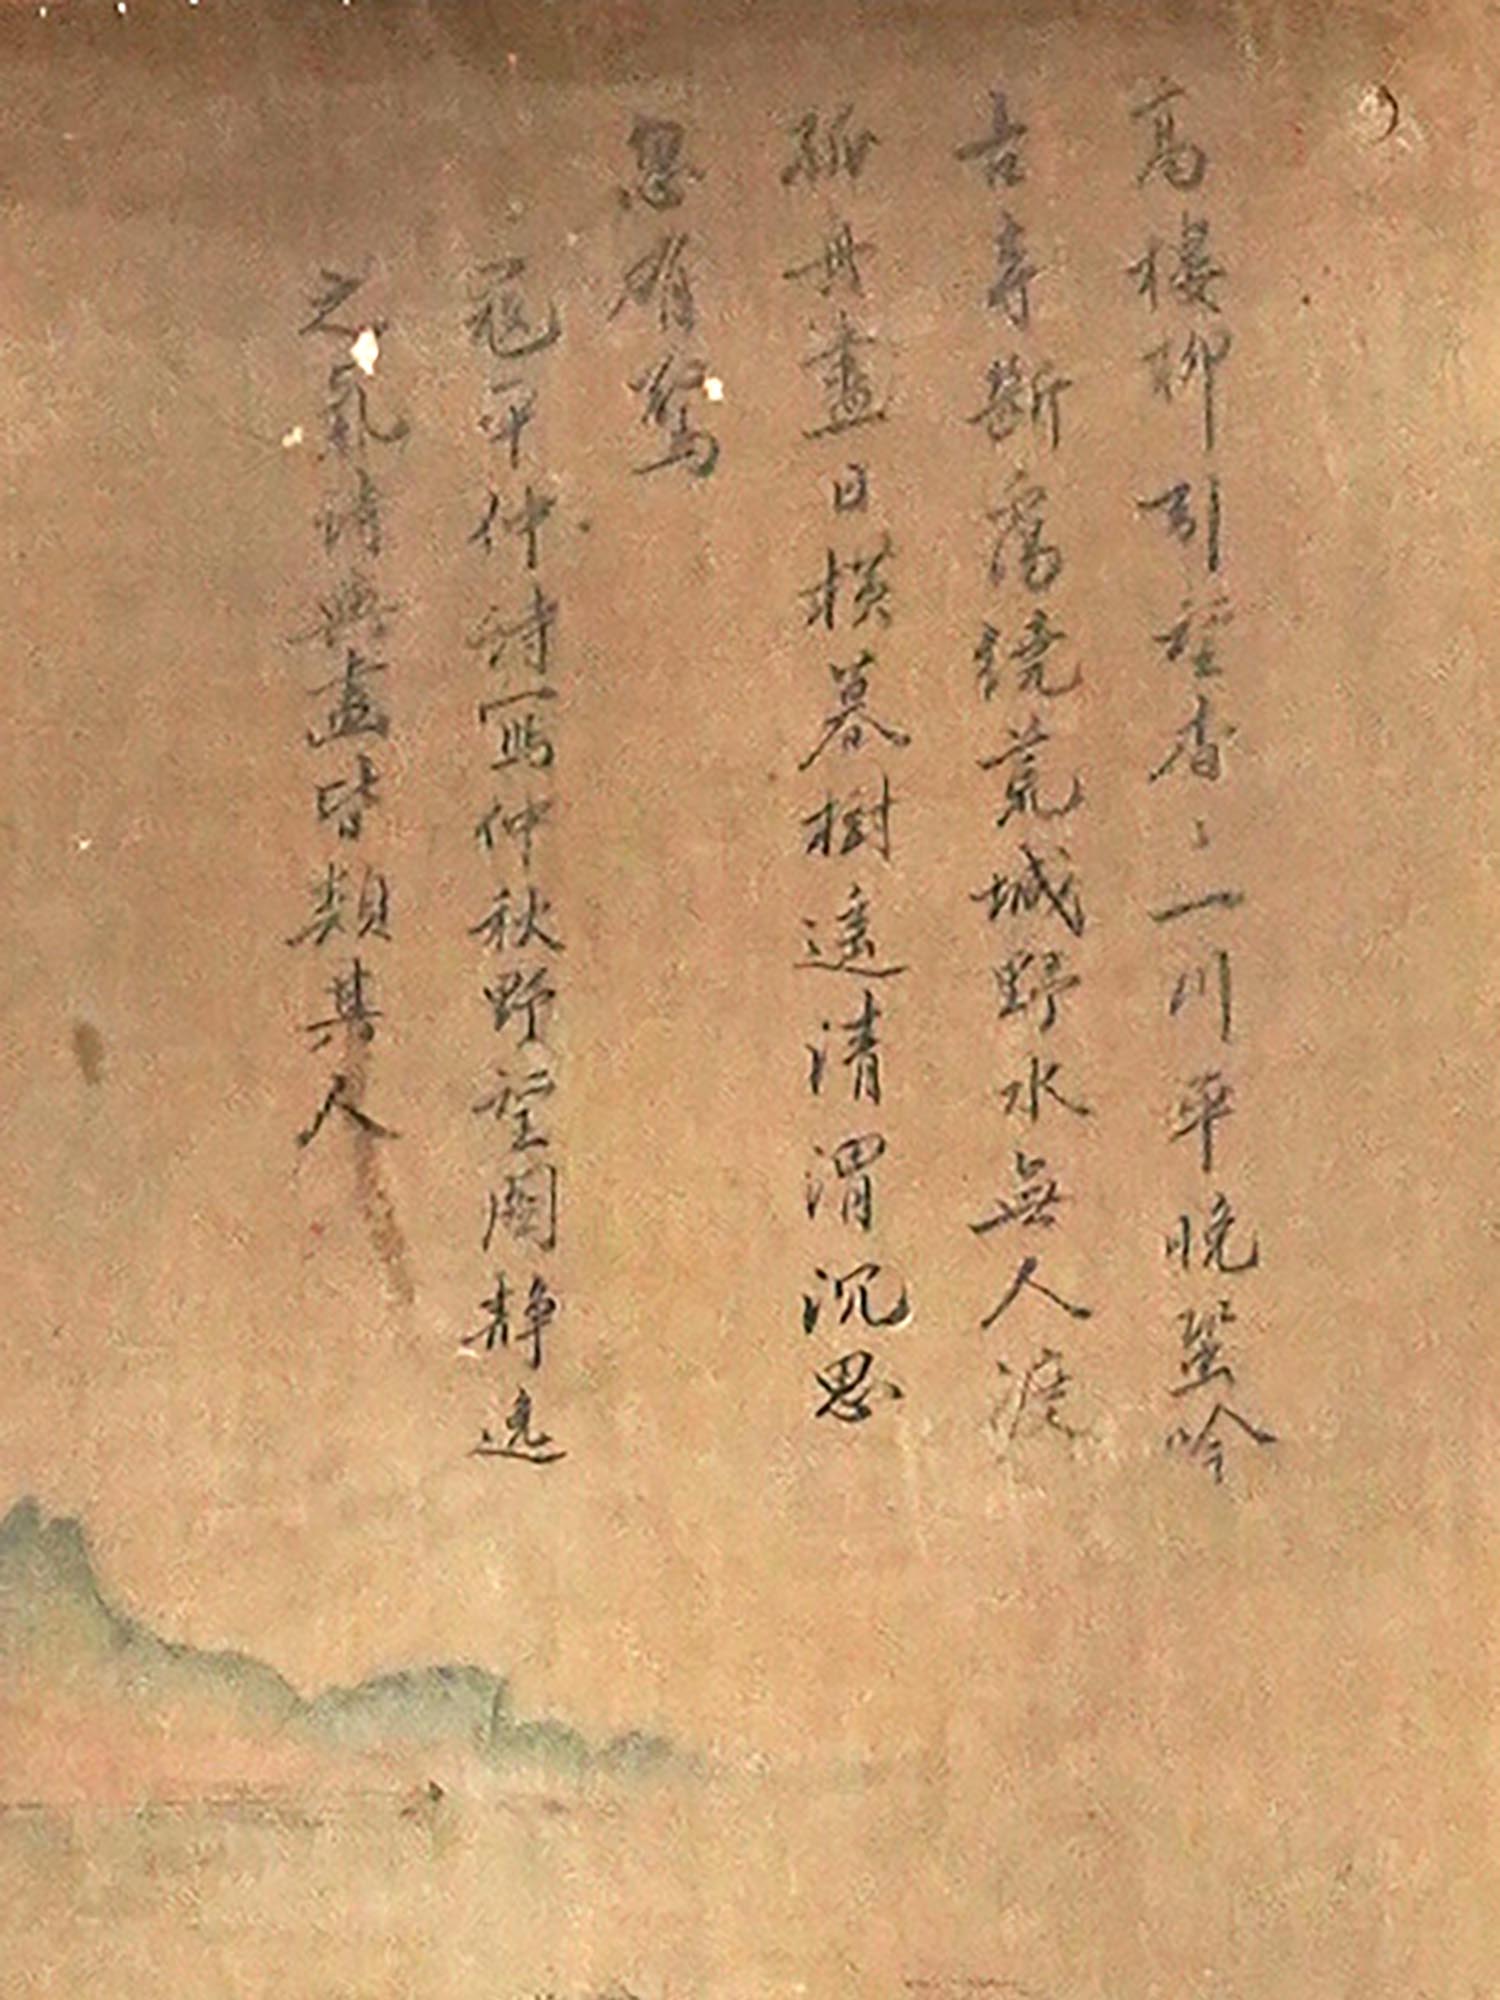 高樓柳引望杳〻一川平晚蛩吟
古寺斷鴈繞荒城野水無人渡
孤舟盡日橫暮樹遥清渭沉思
忽有驚
寇平仲詩寫仲秋野望圖静逸
之氣詩與畫皆類其人